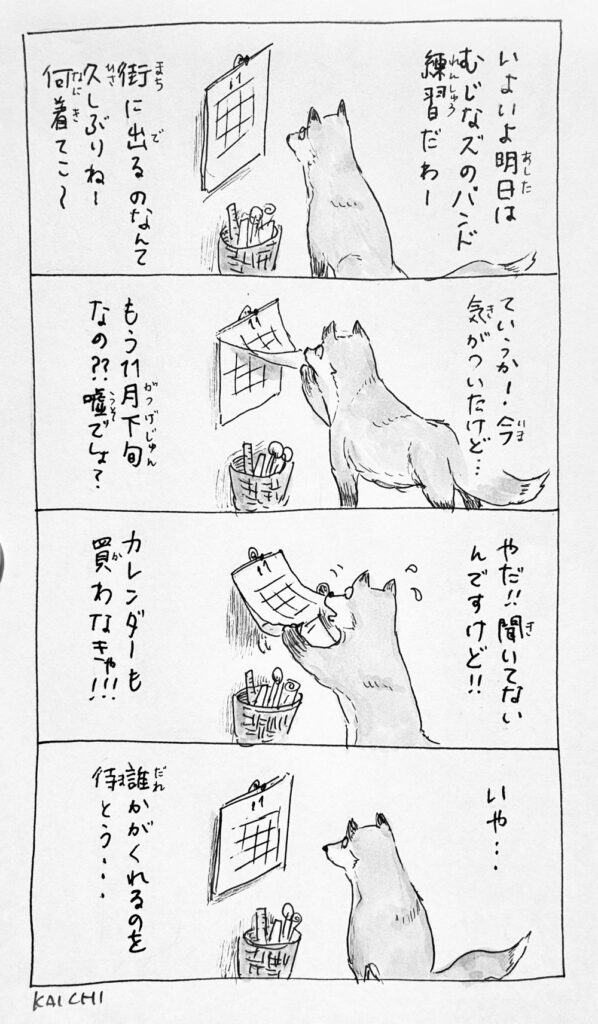 いよいよ明日は
むじなズのバンド
練習だわー
街に出るのなんて
久しぶりねー
何着てこ〜
11
ていうかー・今
気がついたけど…
もう11月下旬
なの??嘘でしょ?
11
やだ!!聞いてない
んですけど!!
カレンダーも
買わなきゃ!!!
11
いや…
誰かがくれるのを
待とう・・・
11
KAICHI